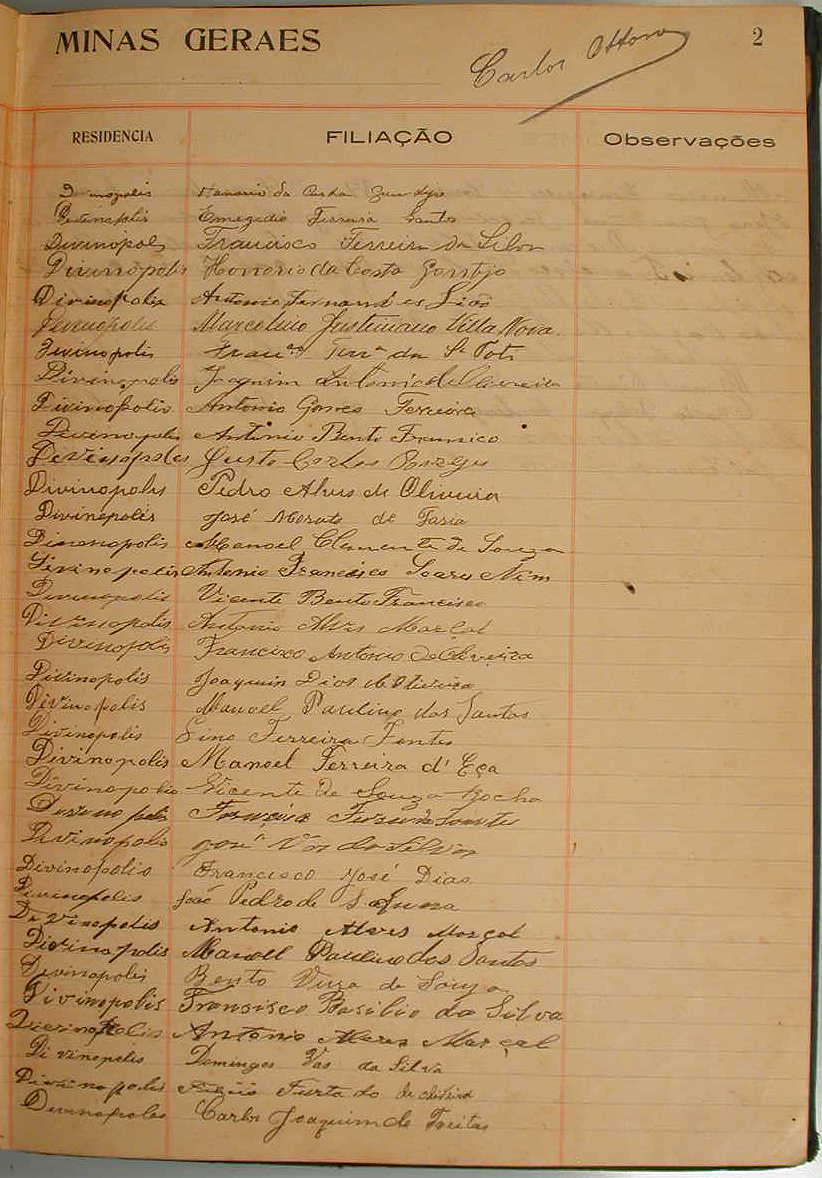 MINAS GERAES
Carlos Ottoni
2
RESIDENCIA FILIAÇÃO Observações
Divinopolis da Cunha
Divinopolis Emegidio Ferreira Santos
Divinopolis Francisco Ferreira da Silva
Divinopolis Honorio da Costa Gontijo
Divinopolis Antonio Fernandes
Divinopolis Marcolino Justiniano Villa Nova
Divinopolis da
Divinopolis Joaquim Antonio de Oliveira
Divinopolis Antonio Gomes Ferreira
Divinopolis Antonio Bento
Divinopoles Justo Carlos Borges
Divinopolis Pedro Alves de Oliveira
Divinopolis José Morato de Faria
Divinopolis Manoel Clemente de Souza
Divinopolis Antonio Francisco Soares
Divinopolis Vicente Bento Francisco
Divinopolis Antonio Alves Marçal
Divinopolis Francisco Antonio de Oliveira
Divinopolis Joaquim Dios de Oliveira
Divinopolis Manoel Paulino dos Santos
Divinopolis Lino Ferreira Fontes
Divinopolis Manoel Ferreira d'Eça
Divinopolis Vicente de Souza Rocha
Divinopolis
Divinopolis José Vas da Silva
Divinopolis Francisco José Dias
Divinopolis João Pedro de
Divinopolis Antonio Alves Marçal
Divinopolis Manoel Paulino dos Santos
Divinopolis Bento de Souza
Divinopolis Fransisco Basilio da Silva
Divinopolis Antonio Alves Marçal
Divinopolis Domingos Vas da Silva
Divinopolis Furtado de Oliveira
Divinopoles Carlos Joaquim de Freitas